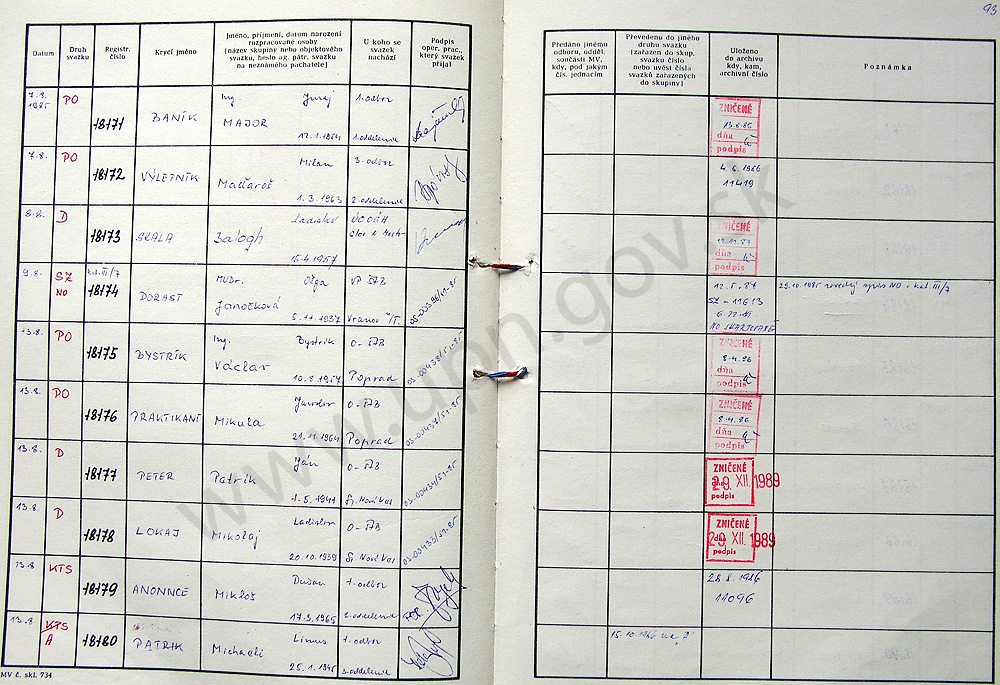 93
Datum
Druh svazku
Registr. číslo
Krycí jméno
Jméno, příjmení, datum narození
rozpracované osoby
(název skupiny nebo objektového
svazku, heslo ag. pátr. svazku
na neznámého pachatele)
U koho se
svazek
nachází
Podpis
oper. prac.,
který svazek
přijal
Předáno jinému
odboru, odděl.
součásti MV,
kdy, pod jakým
čís. jednacím
Převedeno do jiného
druhu svazku
(zařazen do skup.
svazku číslo
nebo uvést čísla
svazků zařazených
do skupiny)
Uloženo
do archivu
kdy, kam,
archivní číslo
Poznámka
7.8. 1985 PO 18171 BANÍK Ing. Juraj 1. odbor
MAJOR
12.1.1954 1. oddelenie
ZNIČENÉ
dňa
podpis
7.8. PO 18172 VÝLETNÍK Milan 3. odbor
Maďaroš
1.3.1963 2. oddelenie
4.6.1986
11419
8.8. D 18173 SKALA Ladislav
Balogh
15.4.1957
ZNIČENÉ
dňa
podpis
9.8. SZ NO kat. III/7 18174 DORAST MUDr. Oľga
Janočková
5.11.1937 Vranov n/T.
SZ - 11613
29.10.1985
13.8. PO 18175 BYSTRÍK Ing. Bystrík O-ŠtB
Václav
10.8.1957 Poprad
05-00438/51-85
ZNIČENÉ
8.4.86
dňa
podpis
13.8. PO 18176 PRAKTIKANT Jaroslav O-ŠtB
Mikula
21.11.1964 Poprad
05-00437/51-85
ZNIČENÉ
8.4.86
dňa
podpis
13.8. D 18177 PETER Ján O-ŠtB
Patrik
1.5.1941 Sp. Nová Ves
05-00434/51-85
ZNIČENÉ
29. XII. 1989
podpis
13.8. D 18178 LOKAJ Ladislav O-ŠtB
Mikolaj
20.10.1939 Sp. Nová Ves
05-00433/51-85
ZNIČENÉ
29. XII. 1989
podpis
13.8. KTS 18179 ANONNCE Dušan 1. odbor
Mikloš
17.3.1965 2. oddelenie
28.8.1986
11096
13.8 KTS A 18180 PATRIK Linus 1. odbor
Michaeli
25.1.1945 3. oddelenie
MV č. skl. 734
www.upn.gov.sk